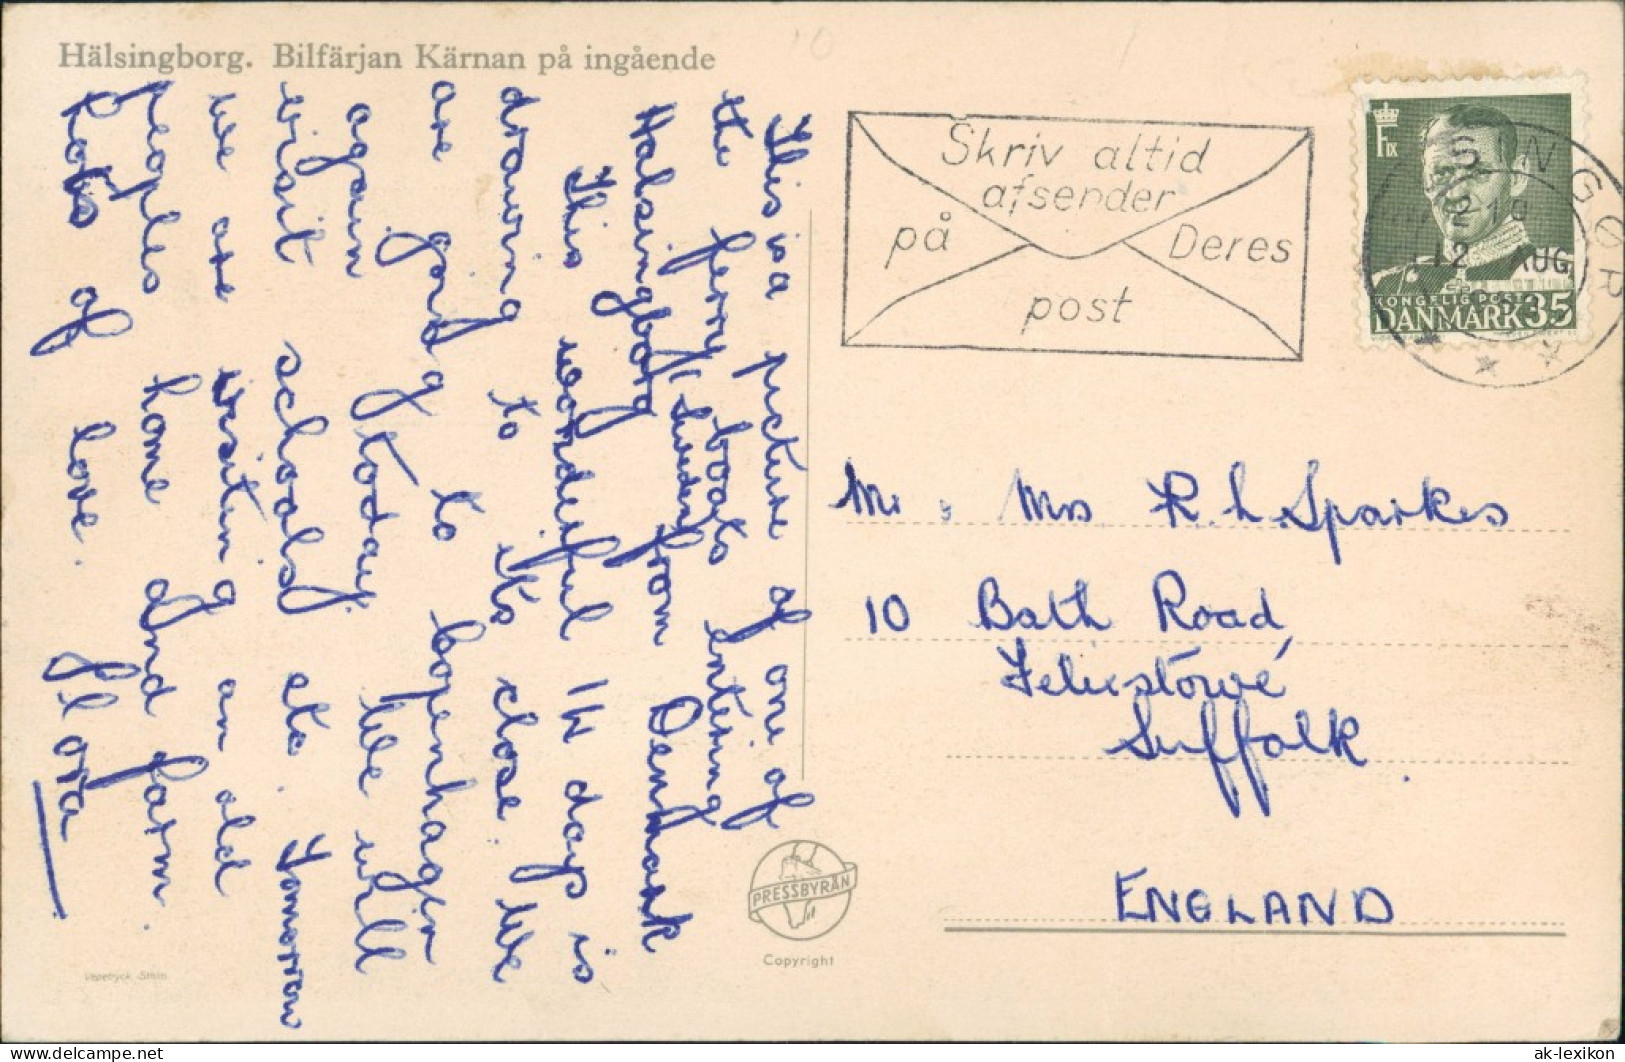 Hälsingborg. Bilfärjan Kärnan på ingående
This is a picture of one of
the ferry boats entering
Halsingborg (Sweden) from Denmark
This wonderful 14 days is
drawing to its close. We
are going to Copenhagen
again today. We will
visit schools etc. Tomorrow
we are visiting an old
peoples home and farm.
Lots of love. Flora
Skriv altid
afsender
på Deres
post
SINGØR
12 AUG.
F IX
KONGELIG POST
DANMARK 35
Mr & Mrs R. L. Sparkes
10 Bath Road,
Felixstowe
Suffolk.
ENGLAND
PRESSBYRÅN
Copyright
ak-lexikon